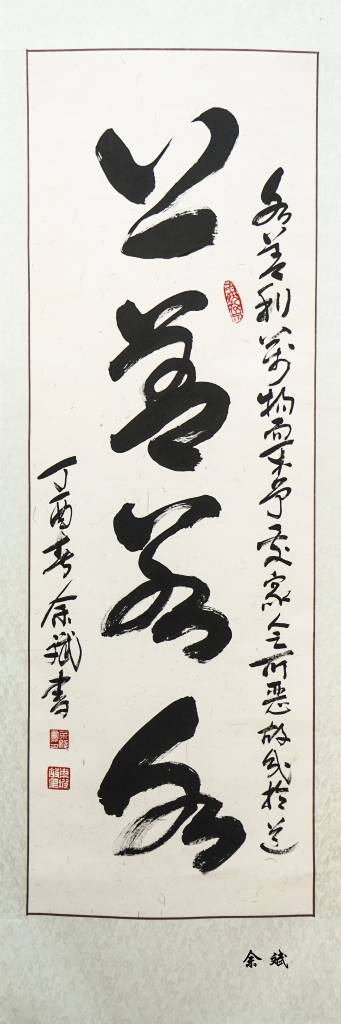 水善利萬物而不爭處眾人之所惡故幾於道
上善若水
丁酉春余斌書
余斌